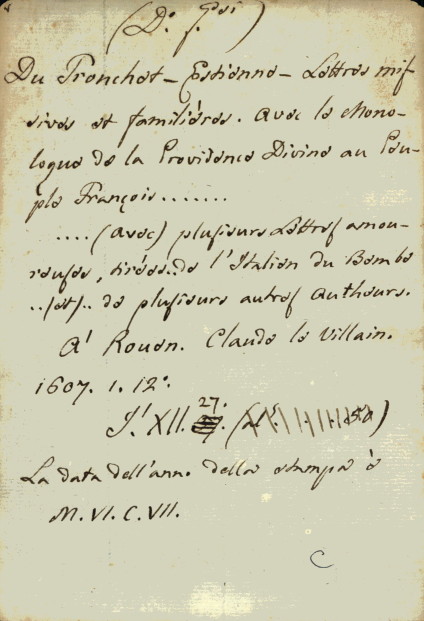 (D.° f. Goi)
Du Tronchet - Estienne - Lettres mis
sives et familiéres. Avec le Mono-
logue de la Providence Divine au Peu-
ple François.......
....(avec) plusieurs Lettres amou-
reuses, tirées..de l'Italien du Bembe
..(et).. de plusieurs autres autheurs.
A' Rouen. Claude le Villain.
1607. 1. 12°.
27.
J.' XII.
La data dell'ann. della stampa è
M.VI.C.VII.
C